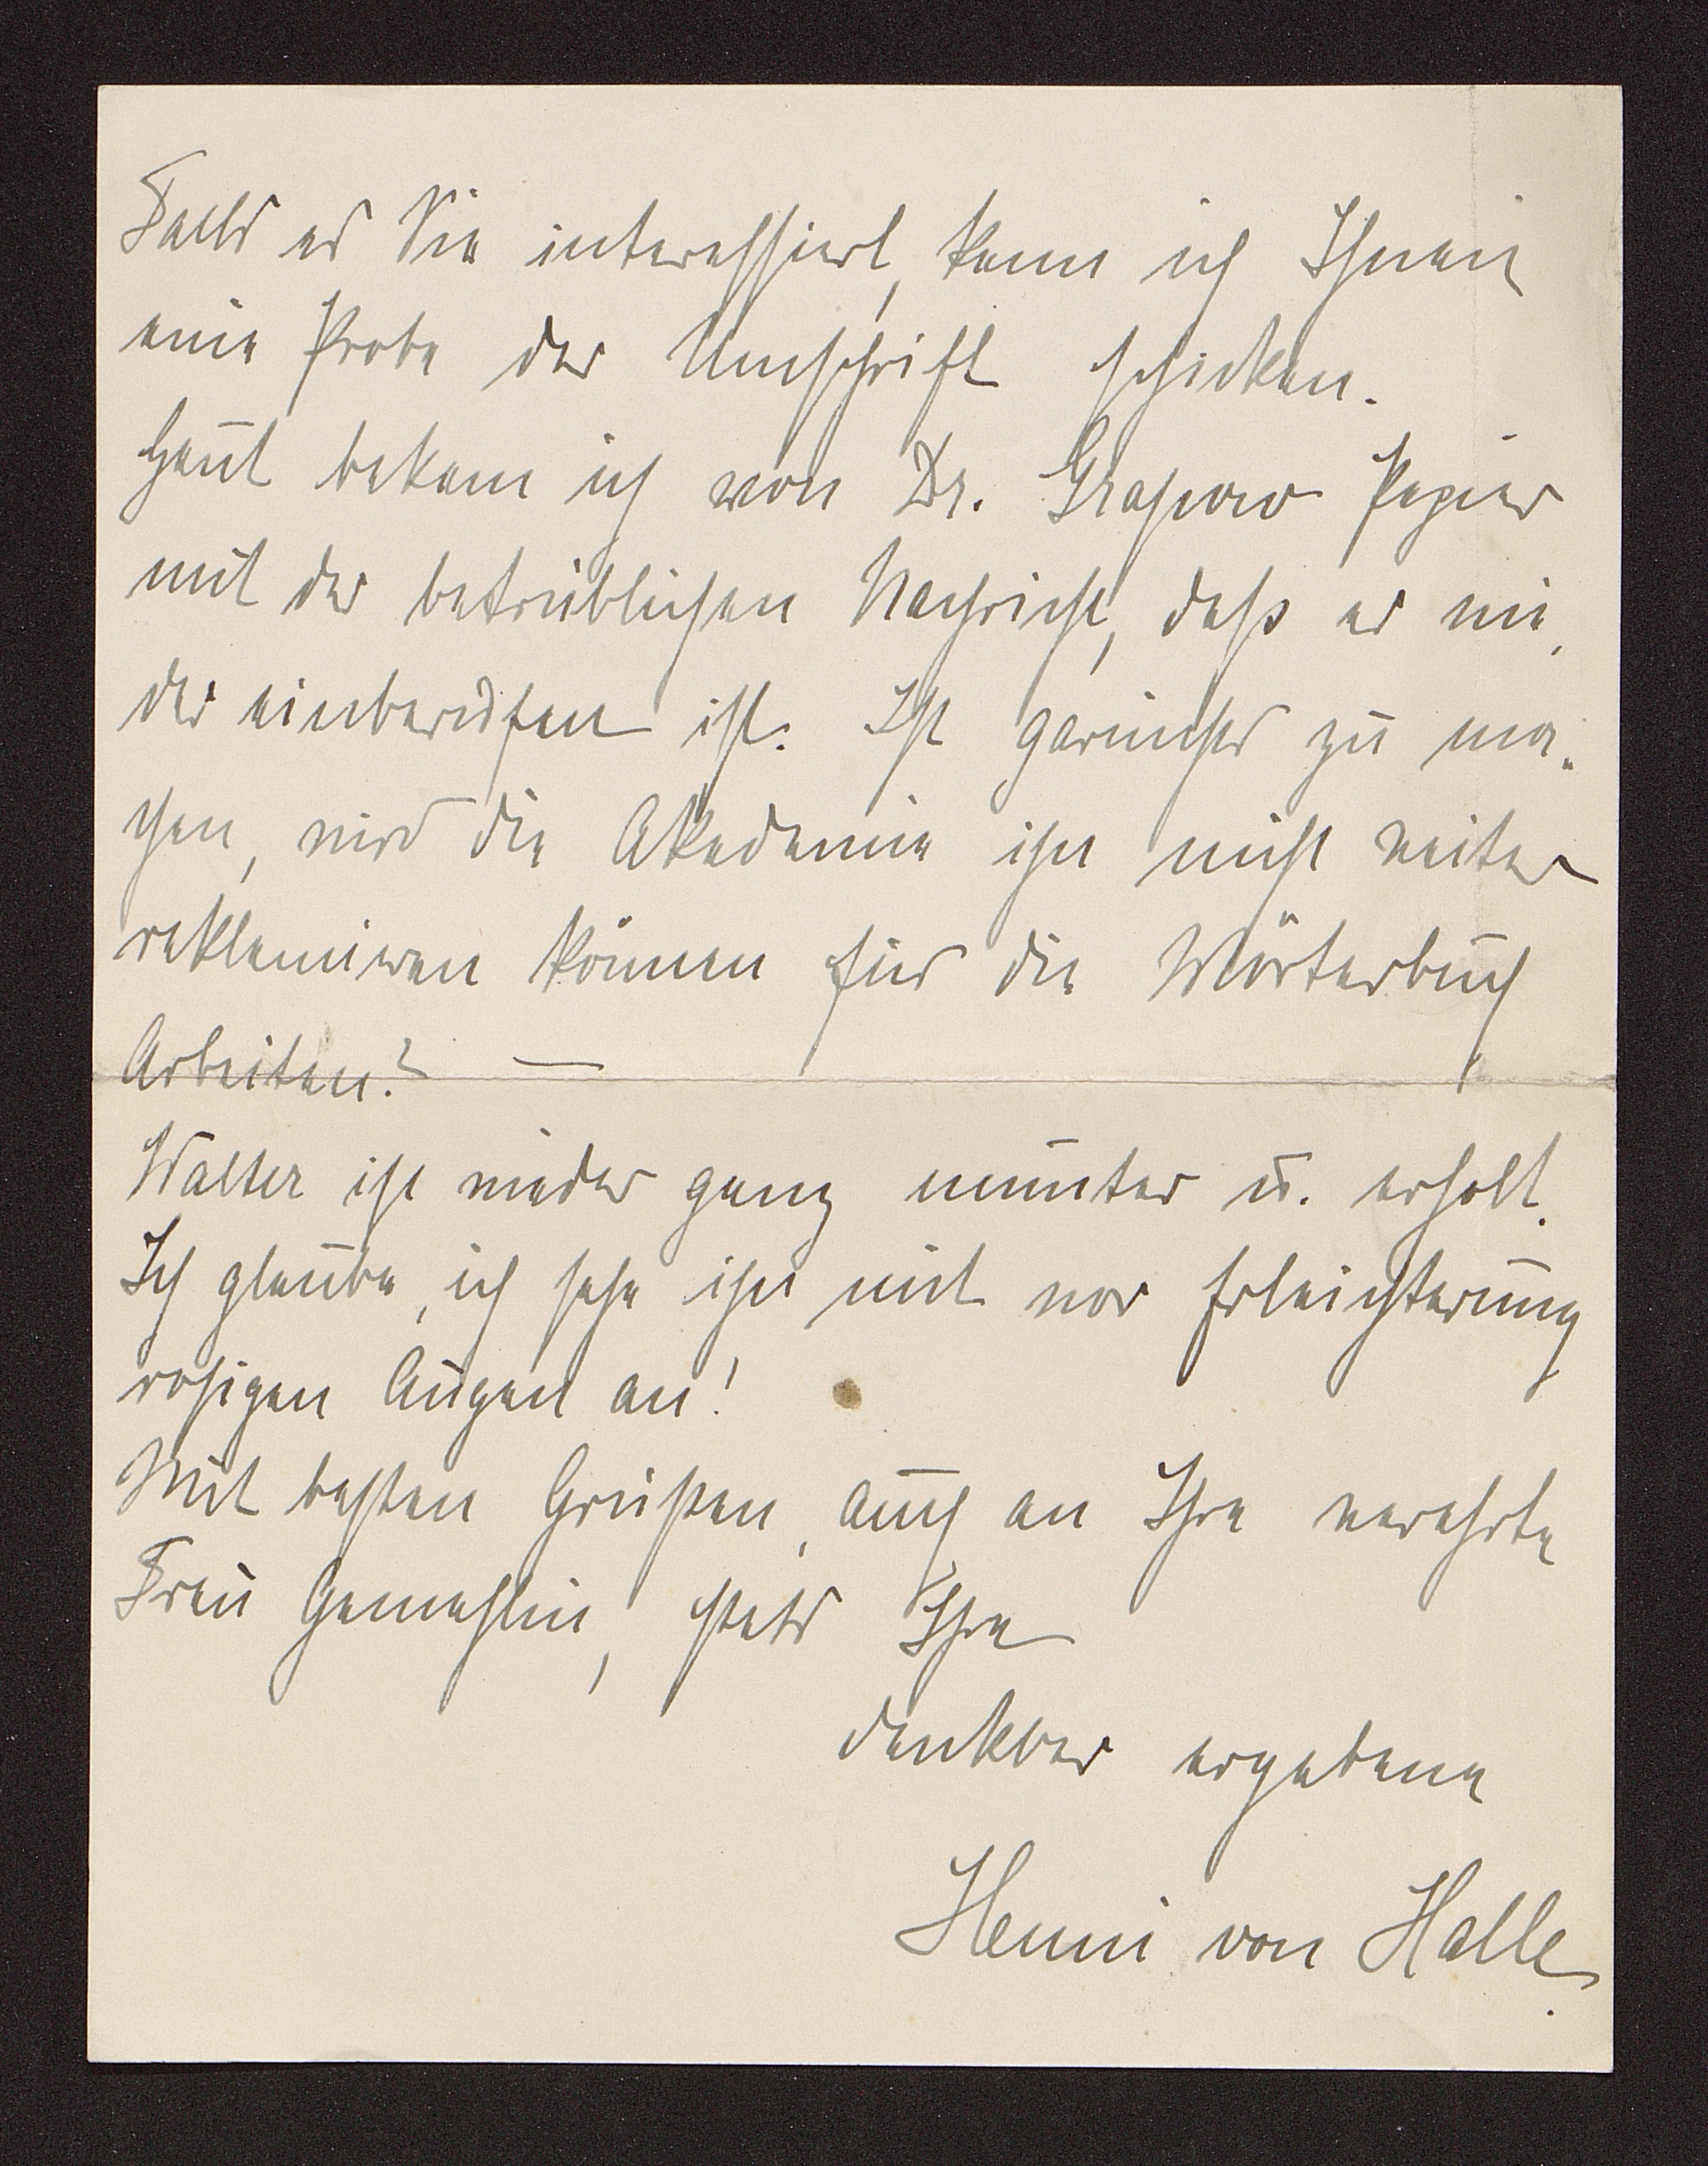 Falls es Sie interessiert, kann ich Ihnen
eine Probe der Umschrift schicken.
Heut bekam ich von Dr. Grapow Papier
mit der betrüblichen Nachricht, daß er wie-
der einberufen ist. Ist garnichts zu ma-
chen, wird die Akademie ihn nicht weiter
reklamieren können für die Wörterbuch
Arbeiten? —
Walter ist wieder ganz munter u. erholt.
Ich glaube, ich sehe ihn mit vor Erleichterung
rosigen Augen an!
Mit besten Grüßen, auch an Ihre verehrte
Frau Gemahlin, stets Ihre
dankbar ergebene
Henni von Halle.